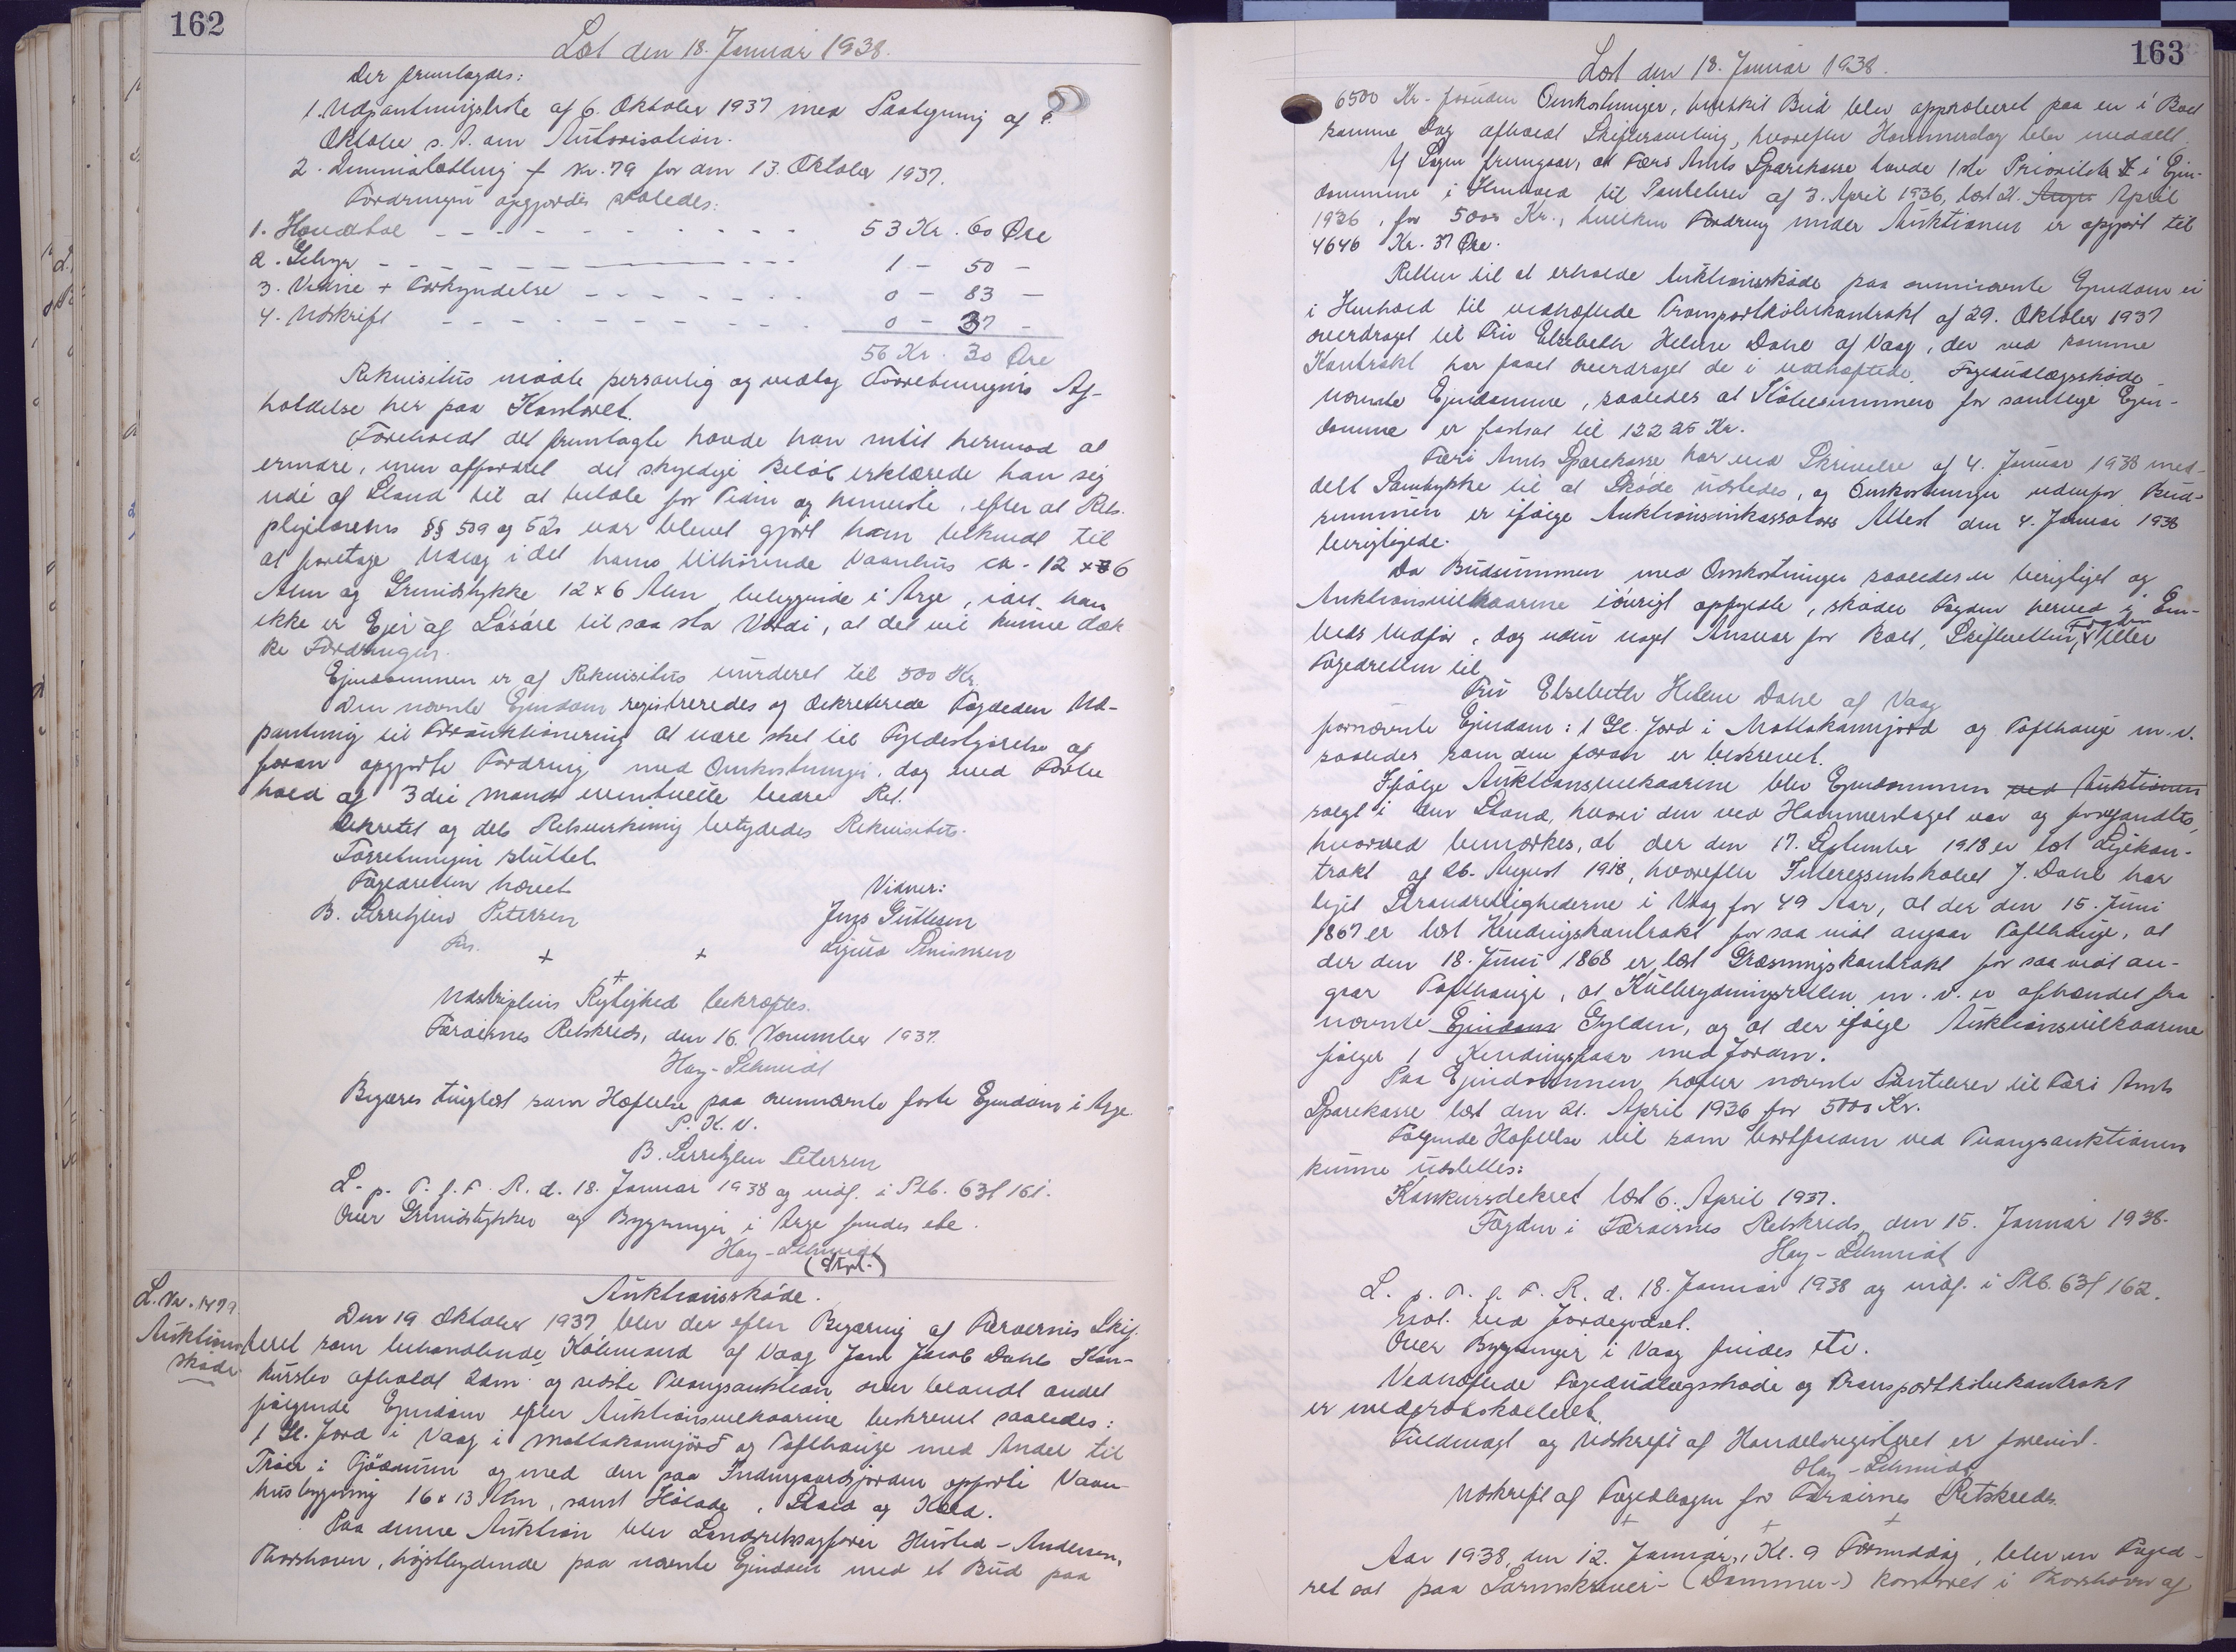 162
Læst den 18. Januar 1938.
Der fremlagdes:
1. Udpantningsliste af 6. Oktober 1937 med Paategning af
Oktober s. A. om Autorisation.
2. Kr. 79 for den 13. Oktober 1937.
Fordringen opgjordes saaledes:
1. 53 Kr. 60 Øre
2. Gebyr 1 - 50 -
3. Vidne + Forkyndelse 0 - 83 -
4. Udskrift 0 - 37 -
56 Kr. 30 Øre
Rekvisitus mødte personlig og vedtog Forretningens Af-
holdelse her paa Kontoret.
Foreholdt det fremlagte havde han intet hermod at
erindre, men affordret det skyldige Beløb erklærede han sig
ude af Stand til at betale for Tiden og henviste, efter at Rets-
plejelovens §§ 509 og 520 var blevet gjort ham bekendt til
at foretage Udlæg i det hams tilhørende Vaanhus ca. 12 x 6
Alen og Grundstykke 12 x 6 Alen beliggende i Arge, idet han
ikke er Ejer af Løsøre til saa stor Værdi, at det vil kunne dæk
ke Fordringen.
Ejendommen er af Rekvisitus vurderet til 500 Kr.
Den nævnte Ejendom registreredes og dekreterede Fogden Ud-
pantning til Forauktionering at være sket til Fyldestgørelse af
foran opgjorte Fordring med Omkostninger, dog med Forbe
hold af 3die Mands eventuelle bedre Ret.
Dekretet og dets Retsvirkning betydedes Rekvisitus.
Forretningen sluttet.
Fogedretten hævet.
Vidner:
B. Sørensen Petersen
Jens Guttesen
Fm.
Sigurd Simonsen
+ + +
Udskriftens Rigtighed bekræftes.
Færøernes Retskreds, den 16. November 1937.
Hay-Schmidt
Begæres tinglæst som Hæftelse paa ovennævnte faste Ejendom i Arge.
P. K. V.
B. Sørensen Petersen
L. p. T. f. F. R. d. 18. Januar 1938 og indf. i Ptb. 63 f 161.
Over Grundstykker og Bygninger i Arge findes etc.
Hay-Schmidt
Auktionsskøde.
L. Nr. 1479.
Auktions
skøde
Den 19. Oktober 1937 blev der efter Begæring af Færøernes Skif-
teret som behandlende Købmand af Vaag Jens Jacob Dahls Kon-
kursbo afholdt 2den og sidste Tvangsauktion over blandt andet
følgende Ejendom efter Auktionsvilkaarene beskrevet saaledes:
1 Gl. Jord i Vaag i Mattakannjørd og Tofthauge med Andel til
Trøer i Fjødnum og med den paa Indmarksjorden opførte Vaan-
husbygning 16 x 13 Alen, samt Hølade, Stald og Keld.
Paa denne Auktion blev Landsretssagfører Husted-Andersen,
Thorshavn, højstbydende paa nævnte Ejendom med et Bud paa
163
Læst den 18. Januar 1938.
6500 Kr. foruden Omkostninger, hvilket Bud blev approberet paa en i Boet
samme Dag afholdt Skiftesamling, hvorefter Hammerslag blev meddelt.
Af Sagen fremgaar, at Færø Amts Sparekasse havde 1ste Prioritet i Ejen-
domme i Henhold til Pantebrev af 3. April 1936, læst 21. April
1936, for 5000 Kr., hvilken Fordring under Auktionen er opgjort til
4646 Kr. 37 Øre.
Retten til at erholde Auktionsskøde paa omnævnte Ejendom er
i Henhold til vedhæftede Transportkøbekontrakt af 29. Oktober 1937
overdraget til Fru Elsebeth Helene Dahl af Vaag, der ved samme
Kontrakt har faaet overdraget de i vedhæftede Fogedudlægsskøde
nævnte Ejendomme, saaledes at Købesummen for samtlige Ejen-
domme er fastsat til 12225 Kr.
Færø Amts Sparekasse har ved Skrivelse af 4. Januar 1938 med-
delt Samtykke til at Skøde udstedes, og Omkostninger udenfor Bud-
summen er ifølge Auktionsinkassators Attest den 4. Januar 1938
berigtigede.
Da Budsummen med Omkostninger saaledes er berigtiget og
Auktionsvilkaarene iøvrigt opfyldte, skøder Fogden herved i Em-
beds Medfør, dog uden noget Ansvar for Boet, Skifteretten, Fogden eller
Fogedretten til
Fru Elsebeth Helene Dahl af Vaag
fornævnte Ejendom: 1 Gl. Jord i Mattakannjørd og Tofthauge m.v.
saaledes som den foran er beskrevet.
Ifølge Auktionsvilkaarene blev Ejendommen ved Auktionen
solgt i den Stand, hvori den ved Hammerslaget var og forefandtes,
hvorved bemærkes, at der den 17. September 1918 er læst Lejekon-
trakt af 26. August 1918, hvorefter Interessentskabet J. Dahl har
lejet Strandrettighederne i Vaag for 49 Aar, at der den 15. Juni
1867 er læst Kendingskontrakt for saa vidt angaar Tofthauge, at
der den 18. Juni 1868 er læst Græsningskontrakt for saa vidt an-
gaar Tofthauge, at Kulbrydningsretten m.v. er afhændet fra
nævnte Ejendom Gylden, og at der ifølge Auktionsvilkaarene
følger 1 Kendingsfaar med Jorden.
Paa Ejendommen hæfter nævnte Pantebrev til Færø Amts
Sparekasse læst den 21. April 1936 for 5000 Kr.
Følgende Hæftelse vil som bortfalden ved Tvangsauktionen
kunne udslettes:
Konkursdekret læst 6. April 1937.
Fogden i Færøernes Retskreds, den 15. Januar 1938.
Hay-Schmidt
L. p. T. f. F. R. d. 18. Januar 1938 og indf. i Ptb. 63 f 162.
not. ved Jordegodset.
Over Bygninger i Vaag findes etc.
Vedhæftede Fogedudlægsskøde og Transportkøbekontrakt
er medprotokolleret.
Fuldmagt og Udskrift af Handelsregisteret er forevist.
Hay-Schmidt
Udskrift af Fogedbogen for Færøernes Retskreds.
+ + +
Aar 1938, den 12. Januar, Kl. 9 Formiddag, blev en Foged-
ret sat paa Sorenskriver- (Dommer-) kontoret i Thorshavn af